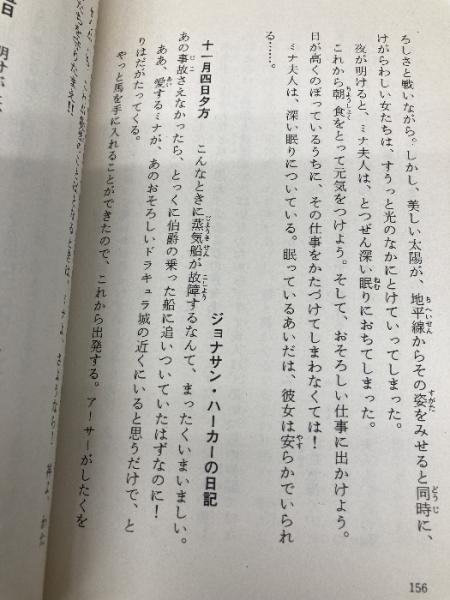 ろしさと戦いながら。しかし、美しい太陽が、地平線からその姿をみせると同時に、
けがらわしい女たちは、すうっと光のなかにとけていってしまった。
夜が明けると、ミナ夫人は、とつぜん深い眠りにおちてしまった。
これから朝食をとって元気をつけよう。そして、おそろしい仕事に出かけよう。
日が高くのぼっているうちに、その仕事をかたづけてしまわなくては！
ミナ夫人は、深い眠りについている。眠っているあいだは、彼女は安らかでいられ
る……。
ジョナサン・ハーカーの日記
十一月四日夕方
こんなときに蒸気船が故障するなんて、まったくいまいましい。
あの事故さえなかったら、とっくに伯爵の乗った船に追いついていたはずなのに！
ああ、愛するミナが、あのおそろしいドラキュラ城の近くにいると思うだけで、と
りはだがたってくる。
やっと馬を手に入れることができたので、これから出発する。アーサーがしたくを
156